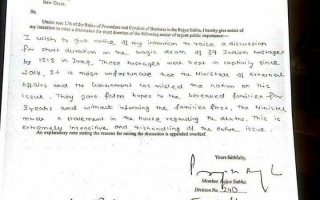 New Delhi.
Sir,
Under rule 176 of the Rules of Procedure and Conduct of Business in the Rajya Sabha, I hereby give notice of
my intention to raise a discussion for short duration of the following matter of urgent public importance:-
I wish to give notice of my intention to raise a discussion
for short duration on the tragic death of 39 Indian hostages
by ISIS in Iraq. These hostages were kept in captivity since
2014. It is most unfortunate that the Minister of External
Affairs and the Government has misled the nation on this
issue. They gave false hopes to the bereaved families for
3 years and without informing the families first, the Minister
made a statement in the house regarding the deaths. This is
extremely insensitive and mishandling of the entire issue.
An explanatory note stating the reasons for raising the discussion is appended overleaf.
Yours faithfully,
Member, Rajya Sabha.
Division No. 240